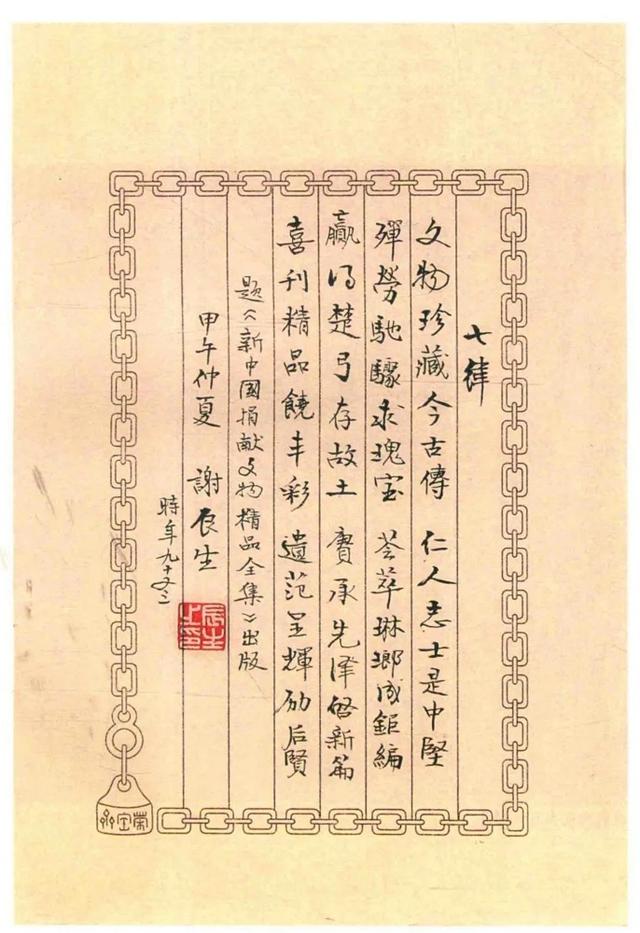 七律
文物珍藏今古傳 仁人志士是中堅
殫勞馳驟求瑰宝 荟萃琳瑯成鉅編
贏得楚弓存故土 賡承先澤啓新篇
喜刊精品饒丰彩 遺范呈輝励后賢
题《新中國捐献文物精品全集》出版
甲午仲夏 謝辰生
時年九十又三
辰生之印